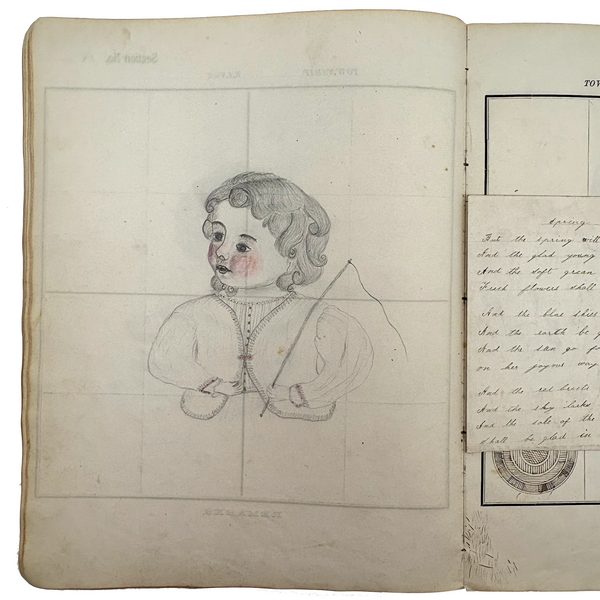 Section No.
TOWNSHIP RANGE
REMARKS
TOW
Spring
But the spring will
And the glad young
And the soft green
Fresh flowers shall
And the blue skies
And the earth be g
And the sun go
on her joyous way
And the red
And the sky larks
And the sole of the
Shall be glad in